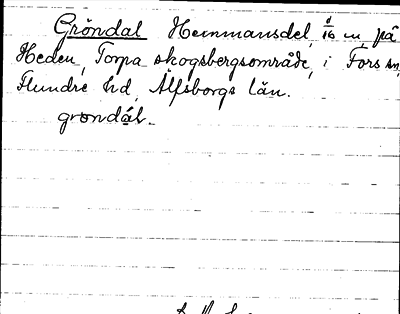 Gröndal Hemmansdel, 1/16 m, på
Heden, Torpa skogsbergsområde, i Fors sn,
Flundre hd, Älfsborgs län.
grøndál.